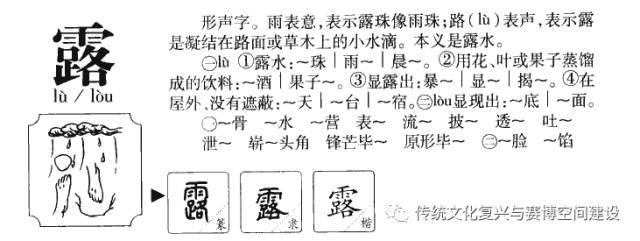 露
lù / lòu
形声字。雨表意,表示露珠像雨珠;路(lù)表声,表示露
是凝结在路面或草木上的小水滴。本义是露水。
㊀lù ①露水:~珠|雨~|晨~。②用花、叶或果子蒸馏
成的饮料:~酒|果子~。③显露出:暴~|显~|揭~。④在
屋外、没有遮蔽:~天|~台|~宿。㊁lòu显现出:~底|~面。
㊀~骨 ~水 ~营 表~ 流~ 披~ 透~ 吐~
泄~ 崭~头角 锋芒毕~ 原形毕~ ㊁~脸 ~馅
露 篆
露 隶
露 楷
传统文化复兴与赛博空间建设